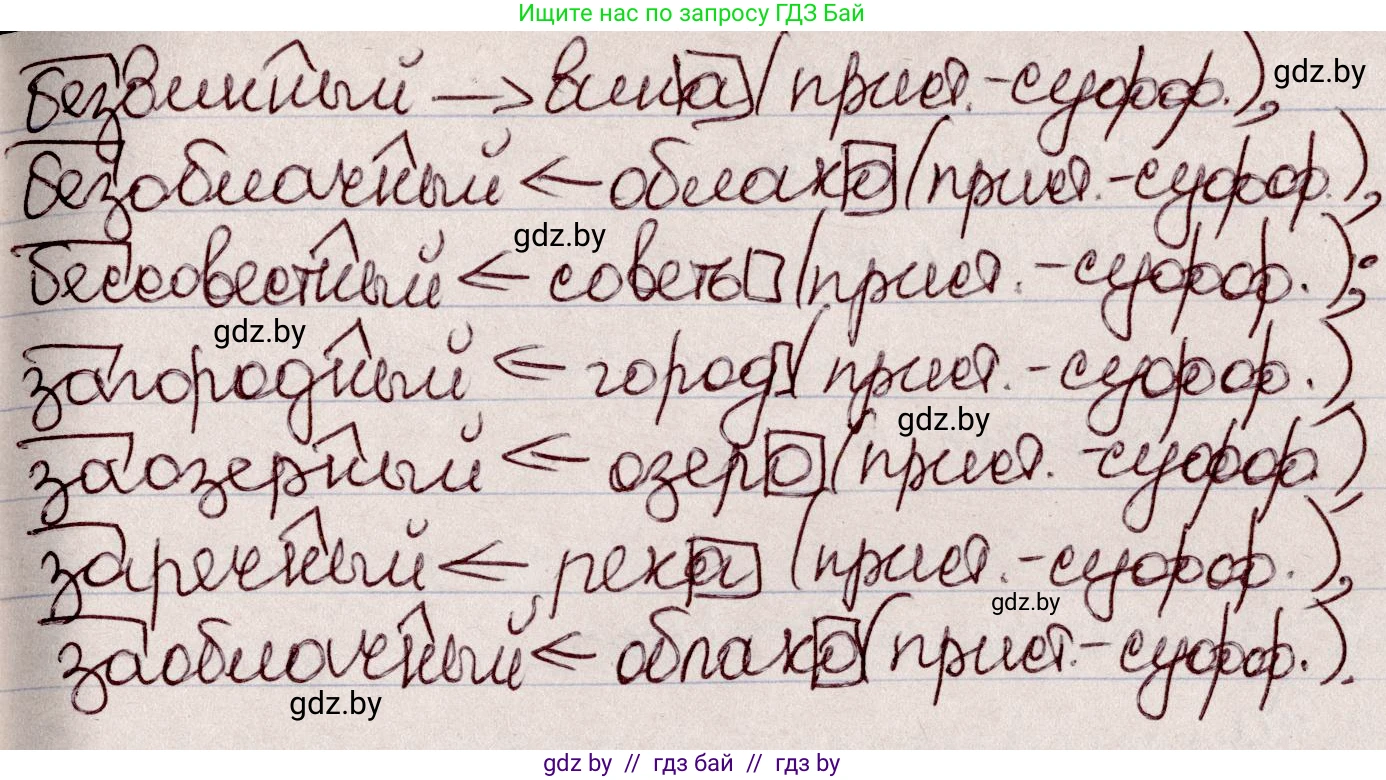 Ищите нас по запросу ГДЗ Бай
безвинный → вина (прист.-суфф.), gdz.by
безоблачный ← облако (прист.-суфф.),
gdz.by
бессовестный ← совесть (прист.-суфф.);
gdz.by
загородный ← город (прист.-суфф.)
gdz.by
заозерный ← озеро (прист.-суфф.)
заречный ← река (прист.-суфф.),
gdz.by
заоблачный ← облако (прист.-суфф.).
gdz.by
gdz by // гдз бай // гдз by